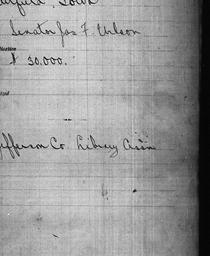 Fairfield, Iowa
Senator Jas F. Wilson
$ 30,000.
Jefferson Co. Library Ass'n